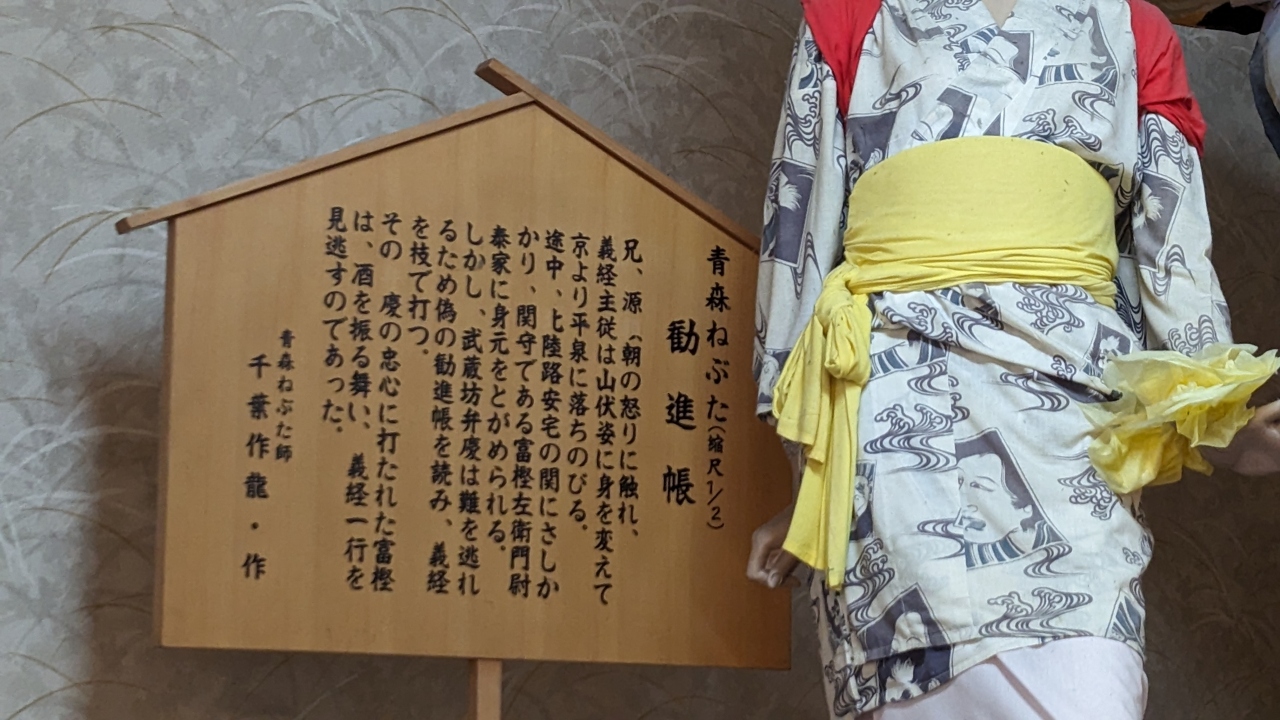 青森ねぶた（縮尺1/2）
勧進帳
兄、源 朝の怒りに触れ、
義経主従は山伏姿に身を変えて
京より平泉に落ちのびる。
途中、上陸路安宅の関にさしか
かり、関守である富樫左衛門尉
泰家に身元をとがめられる。
しかし、武蔵坊弁慶は難を逃れ
るため偽の勧進帳を読み、義経
を枝で打つ。
その 慶の忠心に打たれた富樫
は、酒を振る舞い、義経一行を
見逃すのであった。
青森ねぶた師
千葉作龍・作